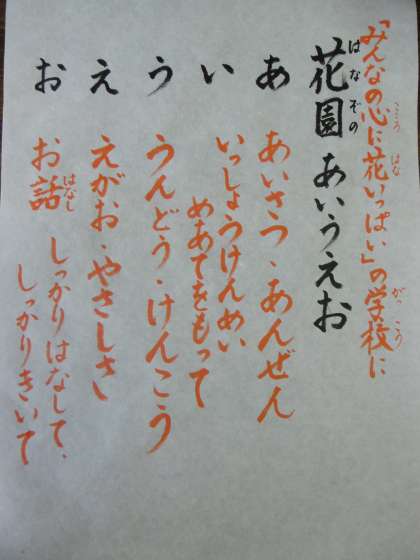 「みんなの心に花いっぱい」の学校に
花園あいうえお
あ あいさつ、あんぜん
い いっしょうけんめい
めあてをもって
う うんどう・けんこう
え えがお・やさしさ
お お話 しっかりはなして、
しっかりきいて